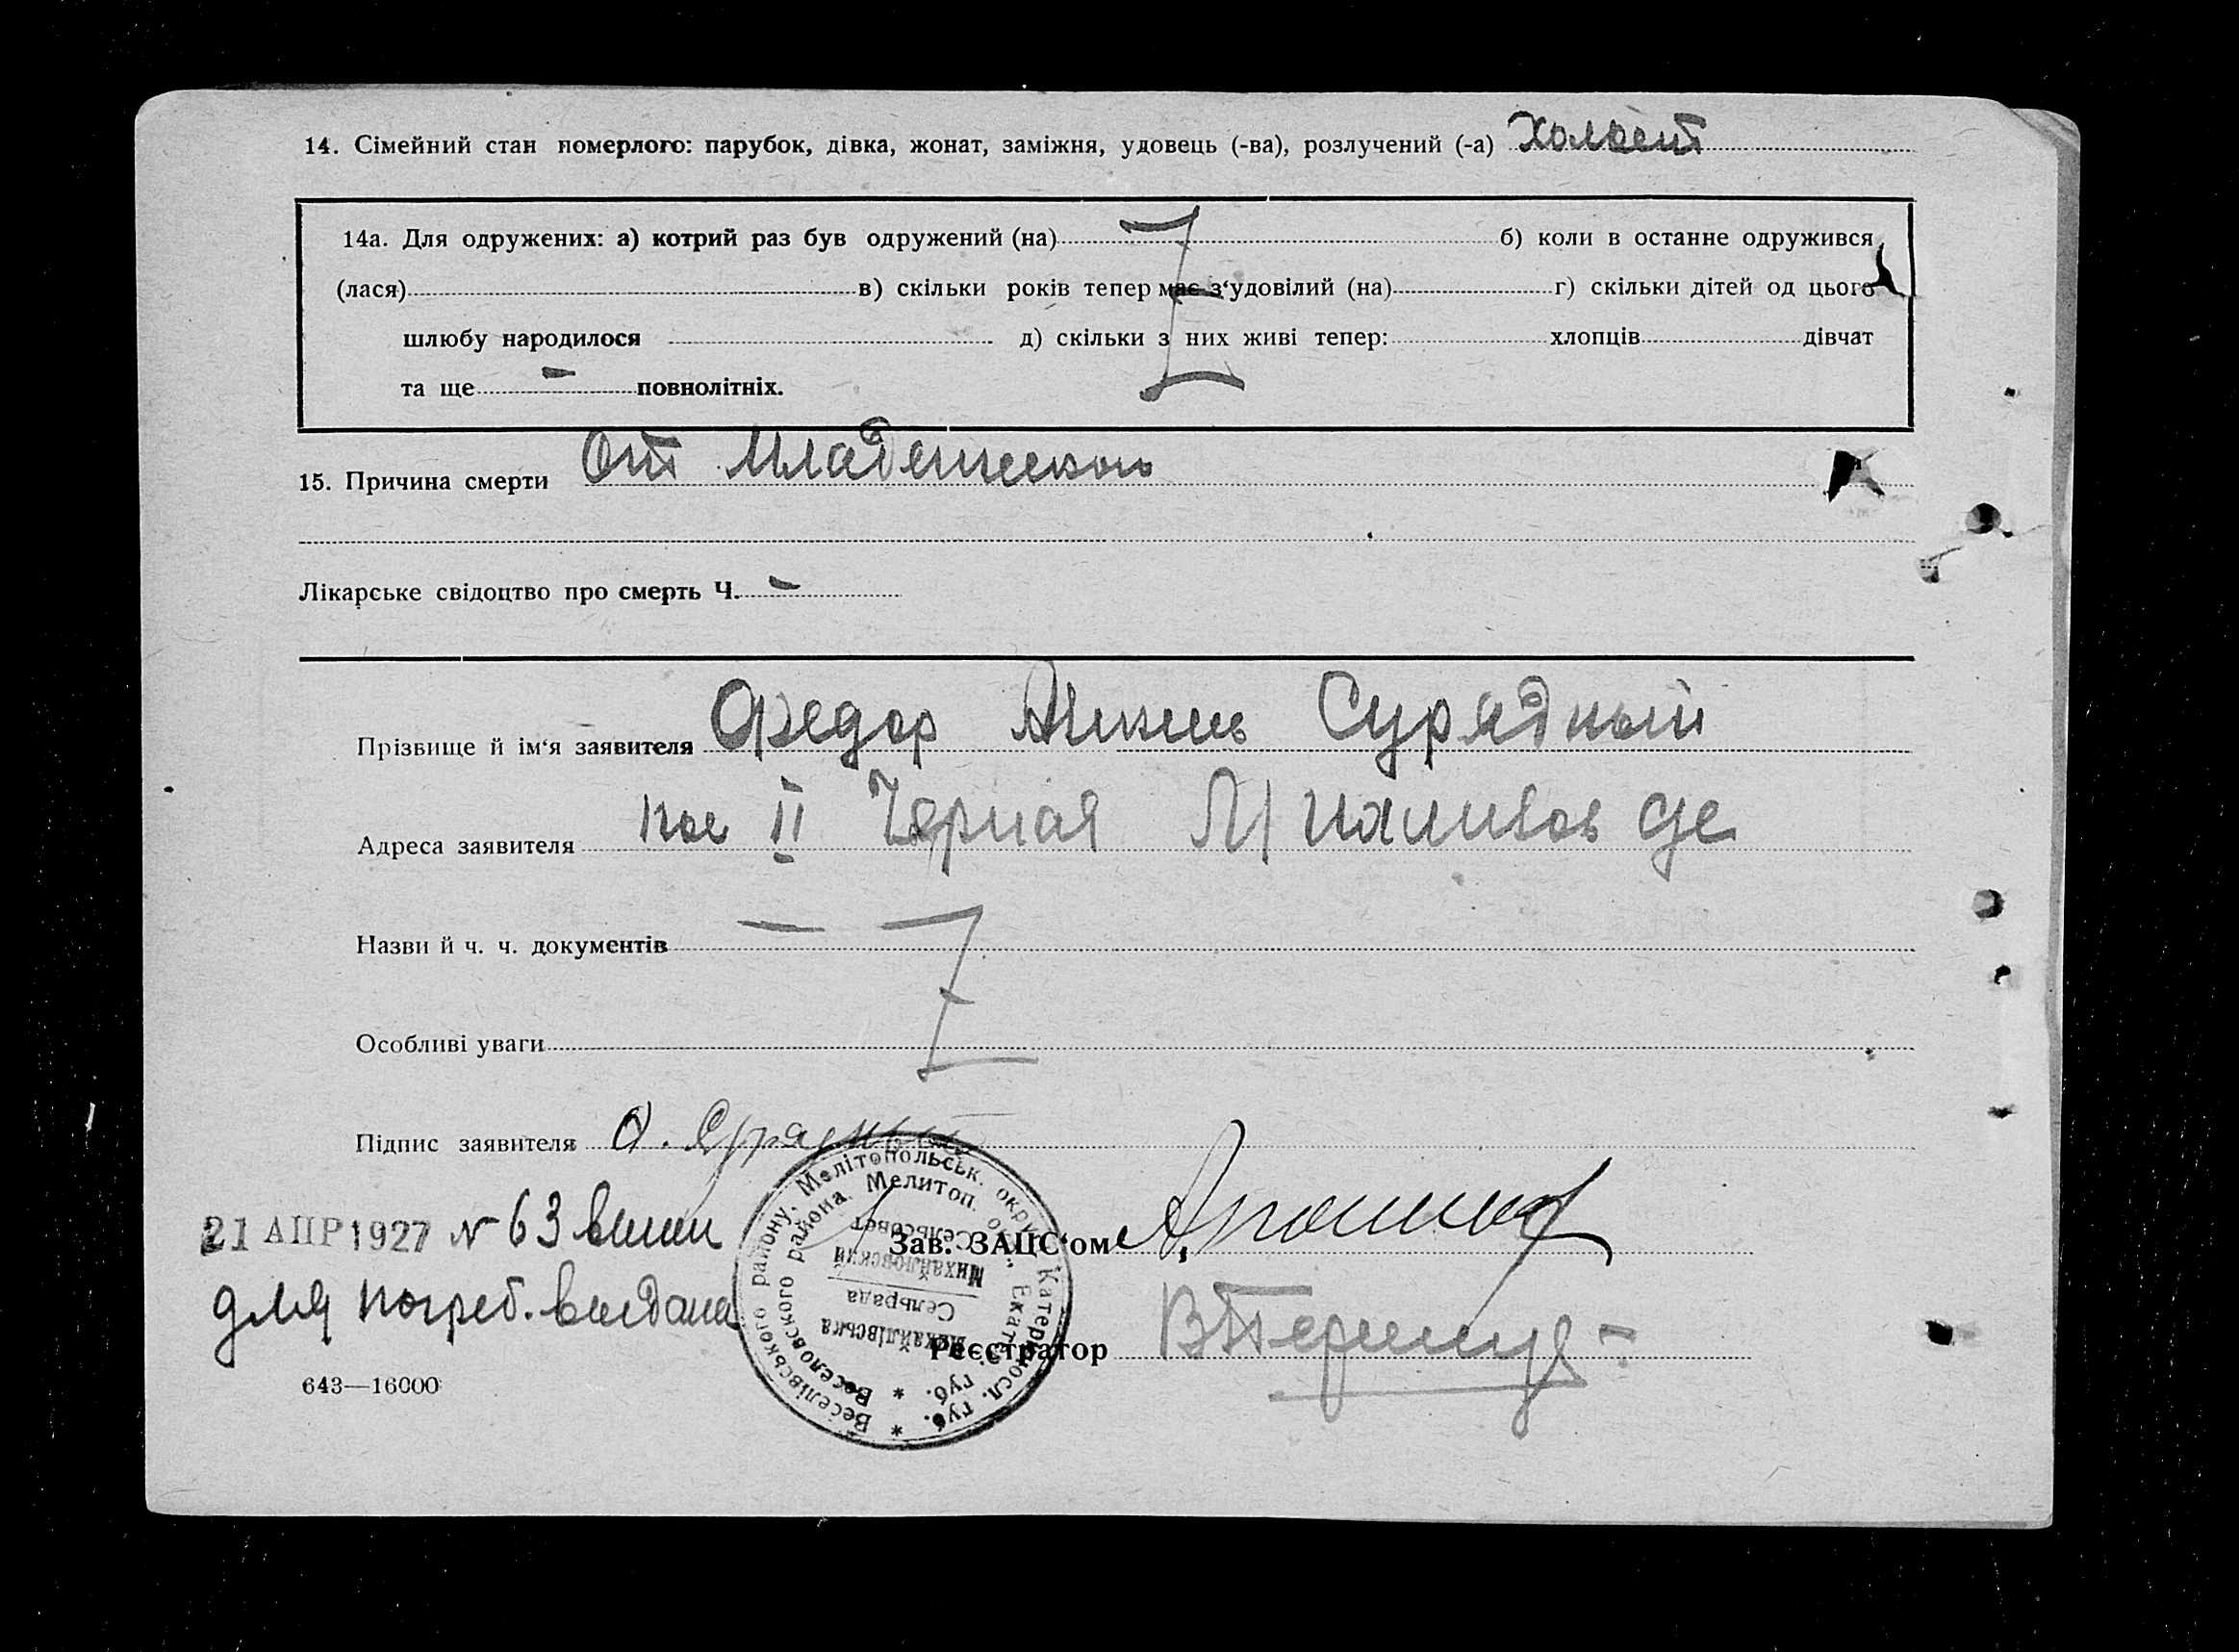 14. Сімейний стан померлого: парубок, дівка, жонат, заміжня, удовець (-ва), розлучений (-а) Холост
14а. Для одружених: а) котрий раз був одружений (на) б) коли в останне одружився
(лася) в) скільки років тепер має з‘удовілий (на) г) скільки дітей од цього
шлюбу народилося д) скільки з них живі тепер: хлопців дівчат
та ще – повнолітніх.
15. Причина смерти От Младенческого
Лікарське свідоцтво про смерть Ч. –
Прізвище й ім‘я заявителя Федор Сурядный
Адреса заявителя пос II Черная
Назви й ч. ч. документів –
Особливі уваги
Підпис заявителя
21 АПР 1927 № 63
для погреб. выдана
Зав. ЗАЦС‘ом
Реєстратор
643—16000
* Веселівського району, Мелітопольськ. округ. Катериносл. губ.
* Веселовского района, Мелитоп. окр. Екатер. губ.
Михайлівська
Сельрада
Михайловский
Сельсовет